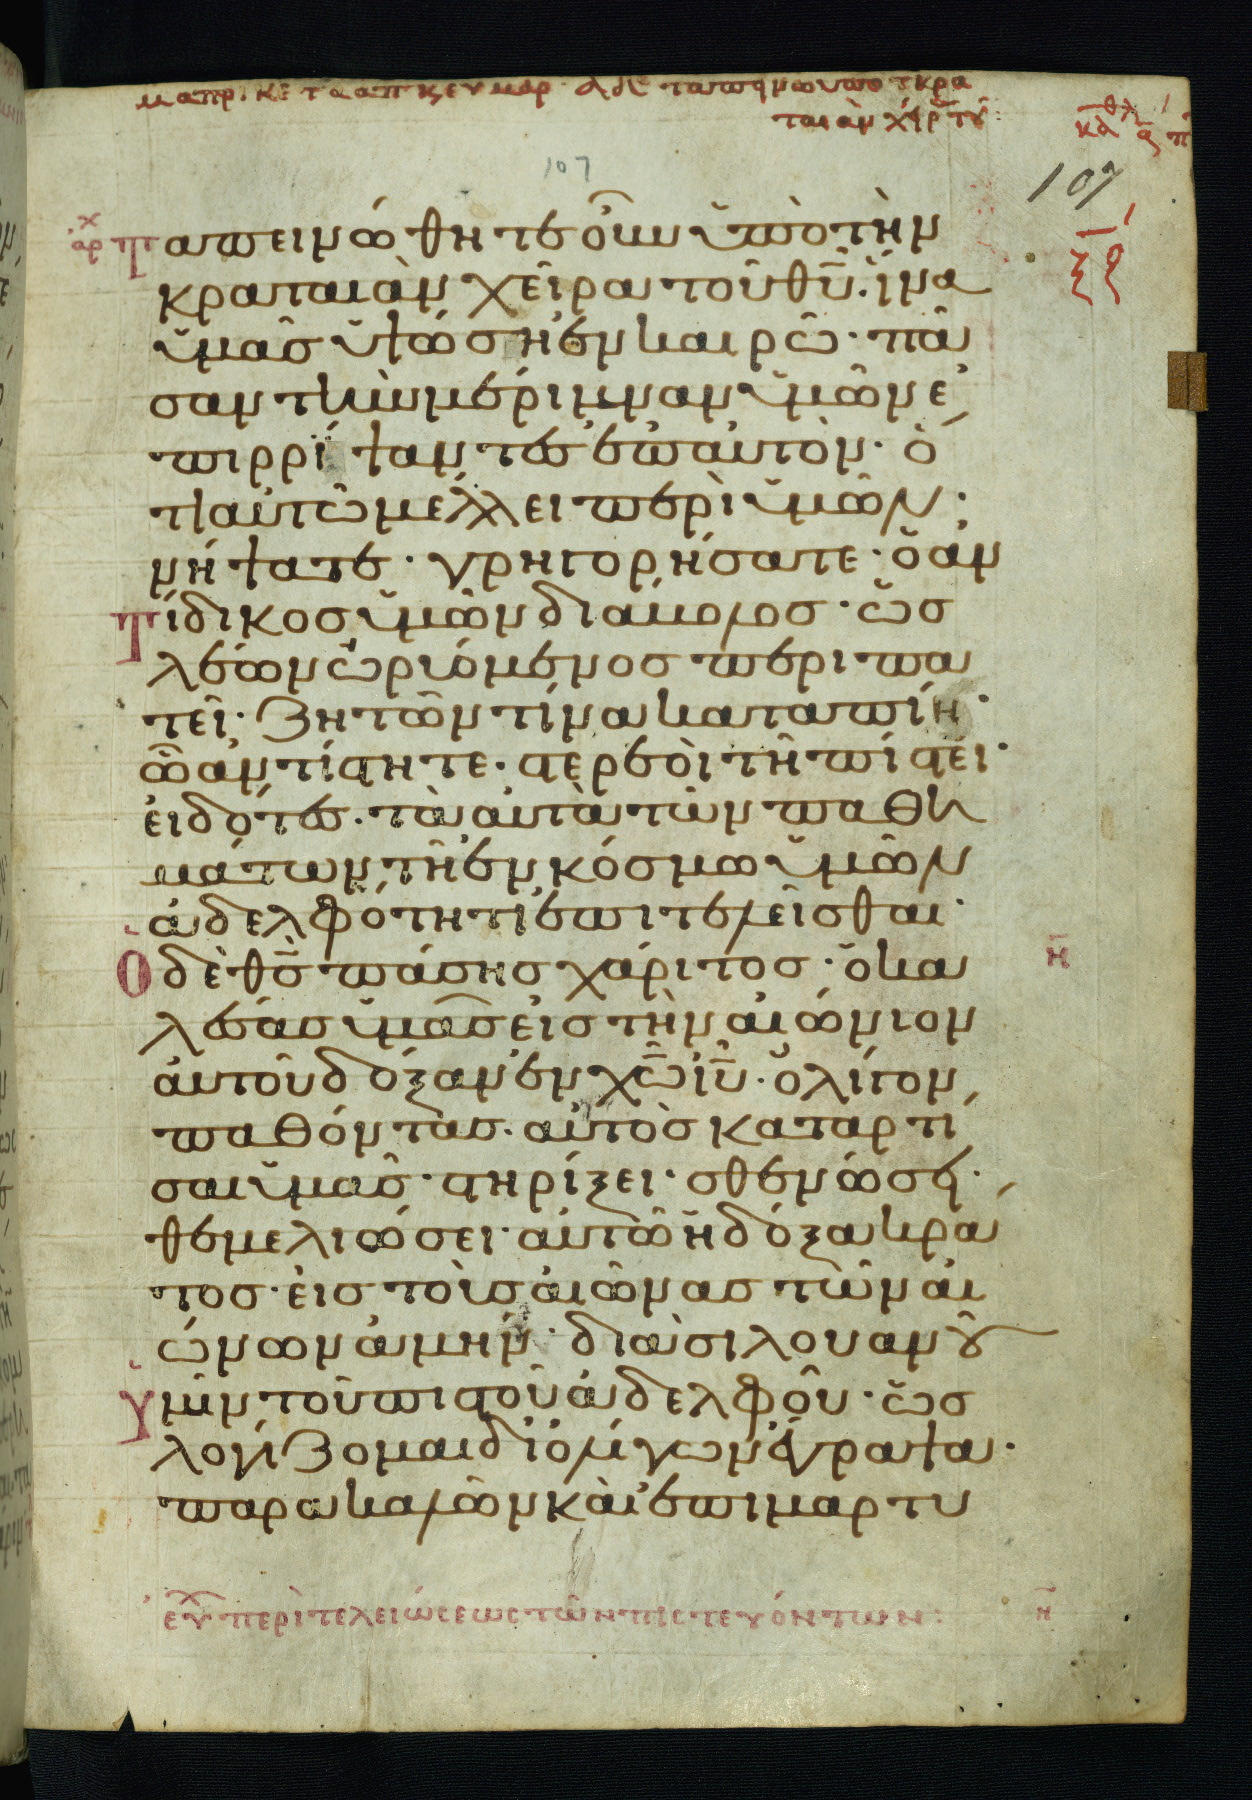 107
107
ταπεινώθητε οὖν ὑπὸ τὴν
κραταιὰν χεῖρα τοῦ θῦ. ἵνα
ὑμᾶς ὑψώση ἐν καιρῶ· πᾶ
σαν τὴν μέριμναν ὑμῶν ἐ
πιρρίψαντες ἐπ αὐτὸν· ὅ
τι αὐτῶ μέλλει περὶ ὑμῶν·
νήψατε· γρηγορήσατε· ὁ ἀν
τίδικος ὑμῶν διάβολος· ὡς
λέων ὠρυόμενος περιπα
τεῖ· ζητῶν τίνα καταπίη·
ὧ ἀντίστητε· στερεοὶ τῆ πίστει·
εἰδότες· τὰ αὐτὰ τῶν παθη
μάτων τῆ ἐν κόσμω ὑμῶν
ἀδελφότητι ἐπιτελεῖσθαι·
Ὁ δὲ θς πάσης χάριτος· ὁ κα
λέσας ὑμᾶς εἰς τὴν αἰώνιον
αὐτοῦ δόξαν ἐν χω ιυ· ὀλίγον
παθόντας· αὐτὸς καταρτί
σαι ὑμᾶς· στηρίξει· σθενώσει·
θεμελιώσει· αὐτῶ ἡ δόξα κρά
τος· εἰς τοὺς αἰῶνας τῶν αἰ
ώνων ἀμήν· διὰ σιλουανοῦ
Ὑμῖν τοῦ πιστοῦ ἀδελφοῦ· ὡς
λογίζομαι δι ὀλίγων ἔγραψα·
παρακαλῶν καὶ ἐπιμαρτυ
περὶ τελειώσεως τῶν πιστευόντων: